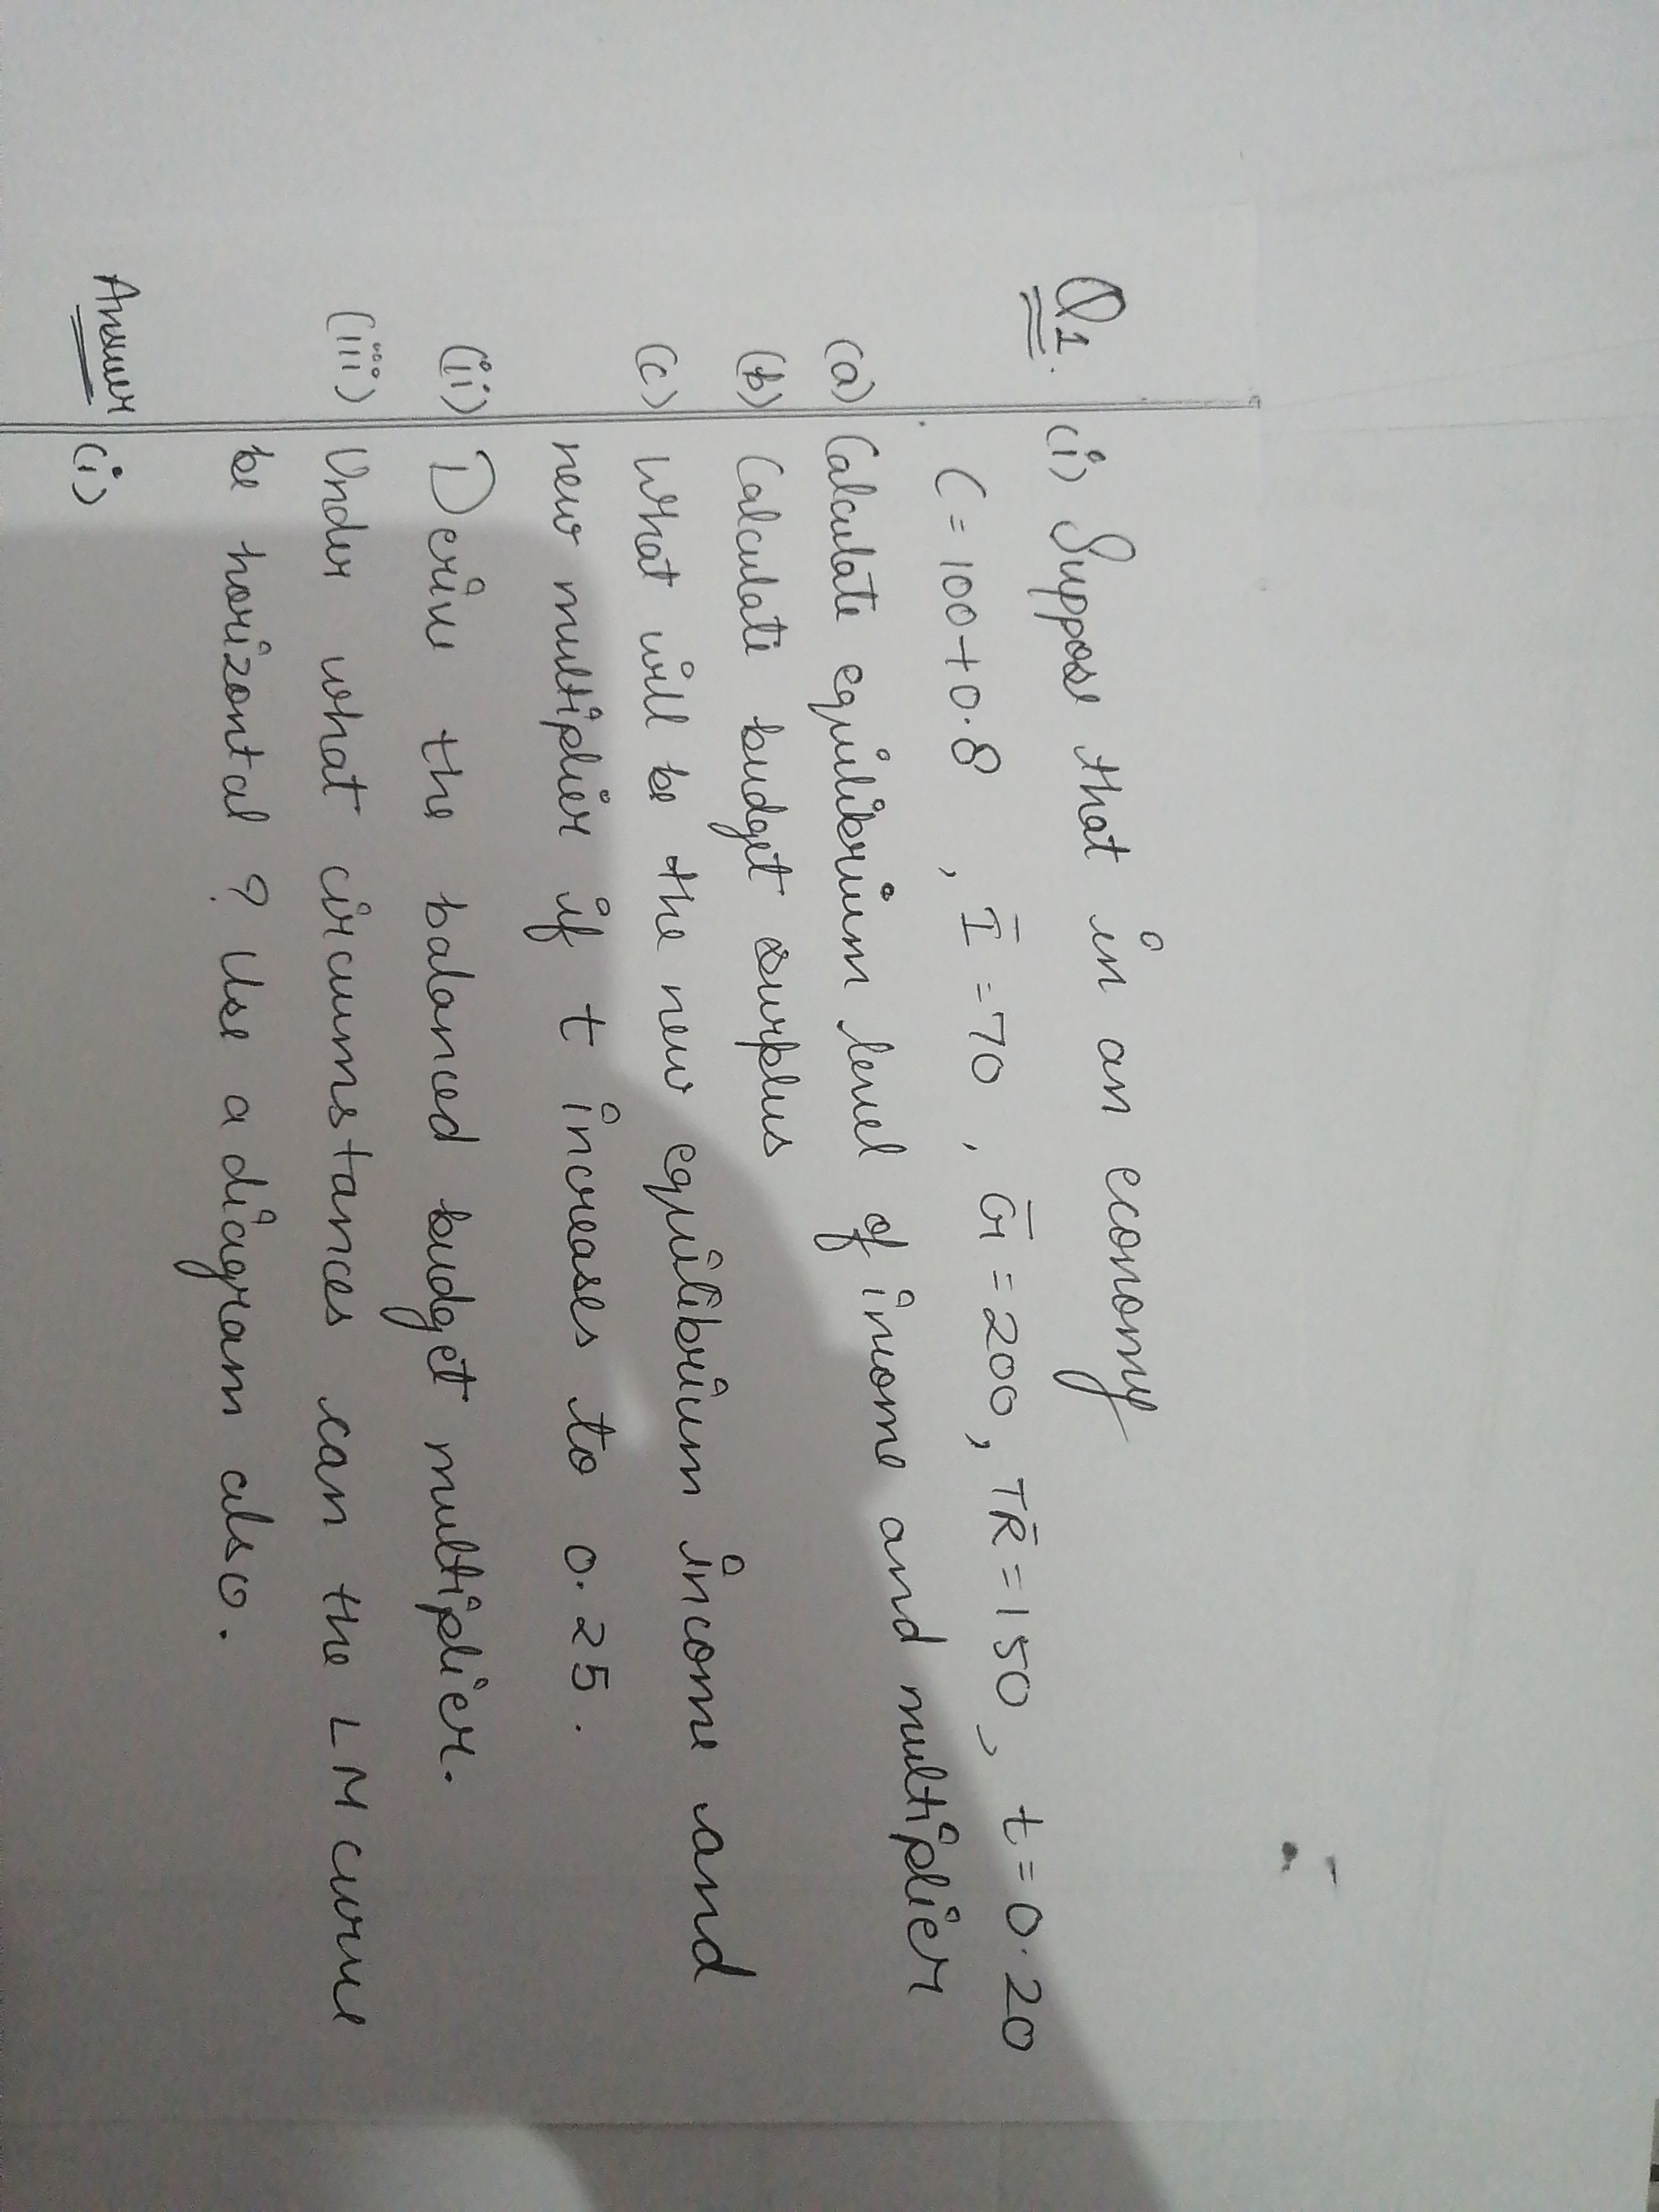 Q1. (i) Suppose that in an economy
C = 100 + 0.8 , Ī = 70 , Ḡ = 200, TR̄ = 150, t = 0.20
(a) Calculate equilibrium level of income and multiplier
(b) Calculate budget surplus
(c) What will be the new equilibrium income and
new multiplier if t increases to 0.25.
(ii) Derive the balanced budget multiplier.
(iii) Under what circumstances can the LM curve
be horizontal ? Use a diagram also.
Answer (i)